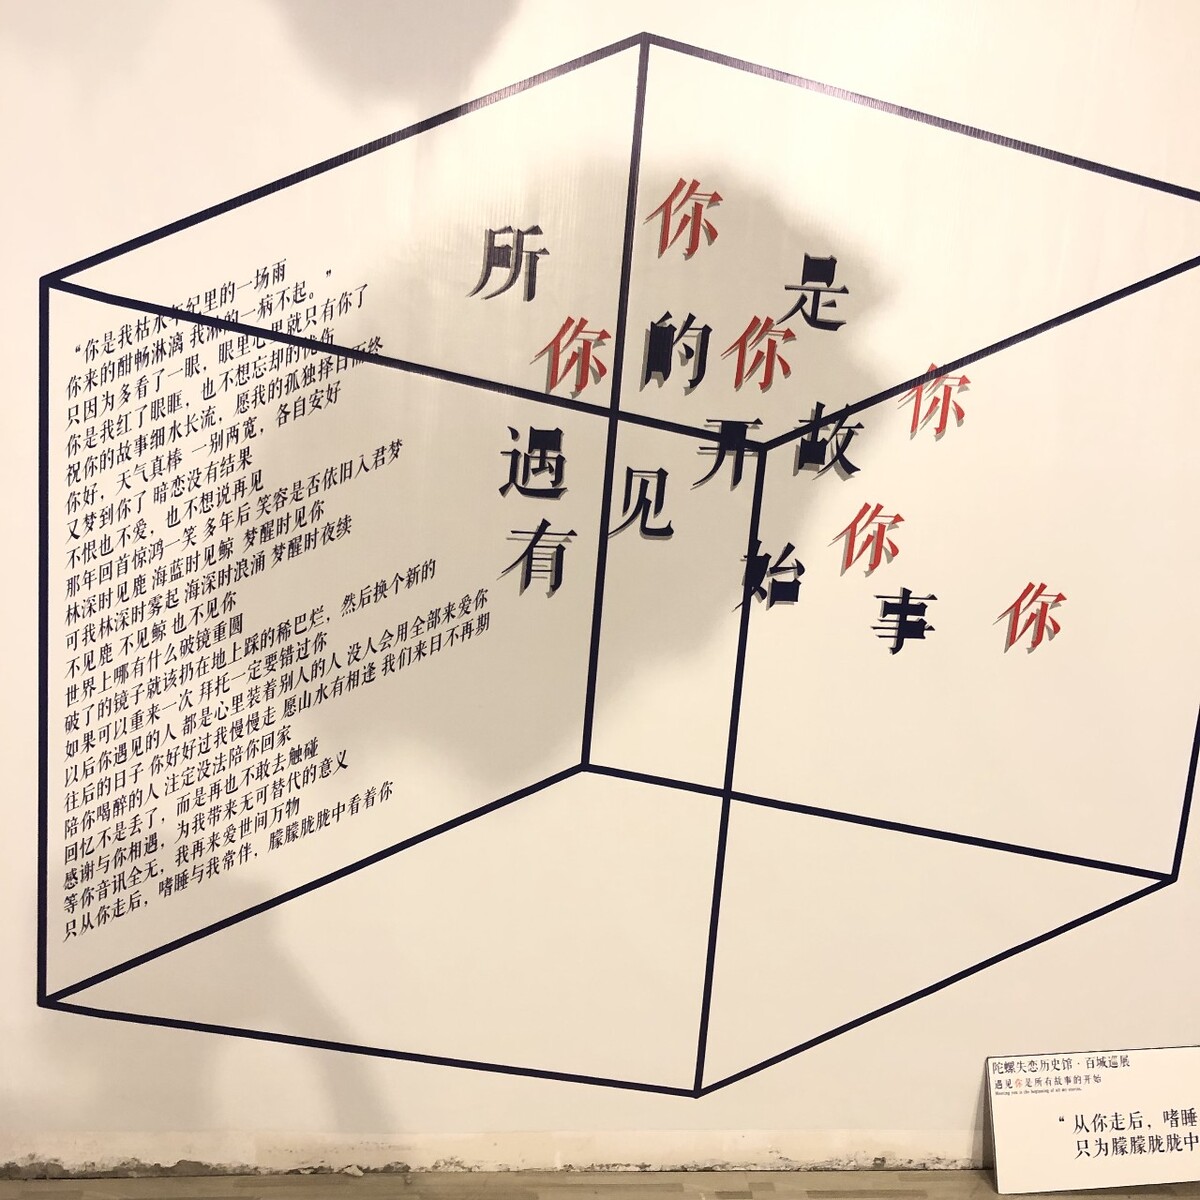 “你是我枯水年纪里的一场雨
你来的酣畅淋漓 我淋的一病不起。”
只因为多看了一眼，眼里心里就只有你了
你是我红了眼眶，也不想忘却的忧伤
祝你的故事细水长流，愿我的孤独择日而终
你好，天气真棒 一别两宽，各自安好
又梦到你了 暗恋没有结果
不恨也不爱，也不想说再见
那年回首惊鸿一笑 多年后 笑容是否依旧入君梦
林深时见鹿 海蓝时见鲸 梦醒时见你
可我林深时雾起 海深时浪涌 梦醒时夜续
不见鹿 不见鲸 也不见你
世界上哪有什么破镜重圆
破了的镜子就该扔在地上踩的稀巴烂，然后换个新的
如果可以重来一次 拜托一定要错过你
以后你遇见的人 都是心里装着别人的人 没人会用全部来爱你
往后的日子 你好好过我慢慢走 愿山水有相逢 我们来日不再期
陪你喝醉的人 注定没法陪你回家
回忆不是丢了，而是再也不敢去触碰
感谢与你相遇，为我带来无可替代的意义
等你音讯全无，我再来爱世间万物
只从你走后，嗜睡与我常伴，朦朦胧胧中看着你
你
所
是
你 的 你
你
遇
开 故
见
有
你
始
事
你
陀螺失恋历史馆·百城巡展
遇见你是所有故事的开始
Meeting you is the beginning of all the stories.
“从你走后，嗜睡
只为朦朦胧胧中